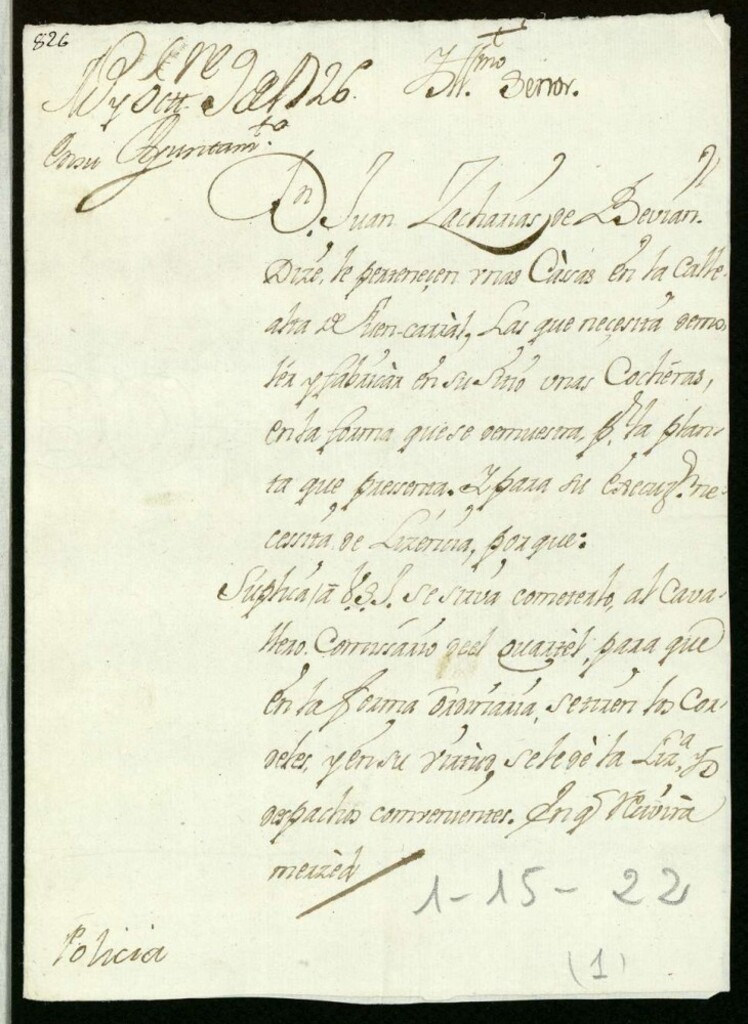 826
M.d y Octt.re 9 de 1726.
Yll.mo Señor.
En su Ayuntam.to
D.n Juan Zacharias de Bevian.
Dize, le pertenezen vnas Cassas en la Calle
alta de Fuen-carràl, Las que necesita demo-
ler y fabricàr en su Sitio vnas Cocheras,
en la forma que se demuestra, p.r la plan-
ta que pressenta. Y para su Execuz.n ne-
cessita de Lizencia, porque:
Suplica a V.S.I. se sirva cometerlo, al Cava-
llero Comissario deel Quartèl, para que
en la forma ordinaria, se tiren los Cor-
deles, y en su virtud, se le dè la Liz.a y
despachos combenientes. En q.e Recivirà
merzèd
1-15-22
(1)
Policia